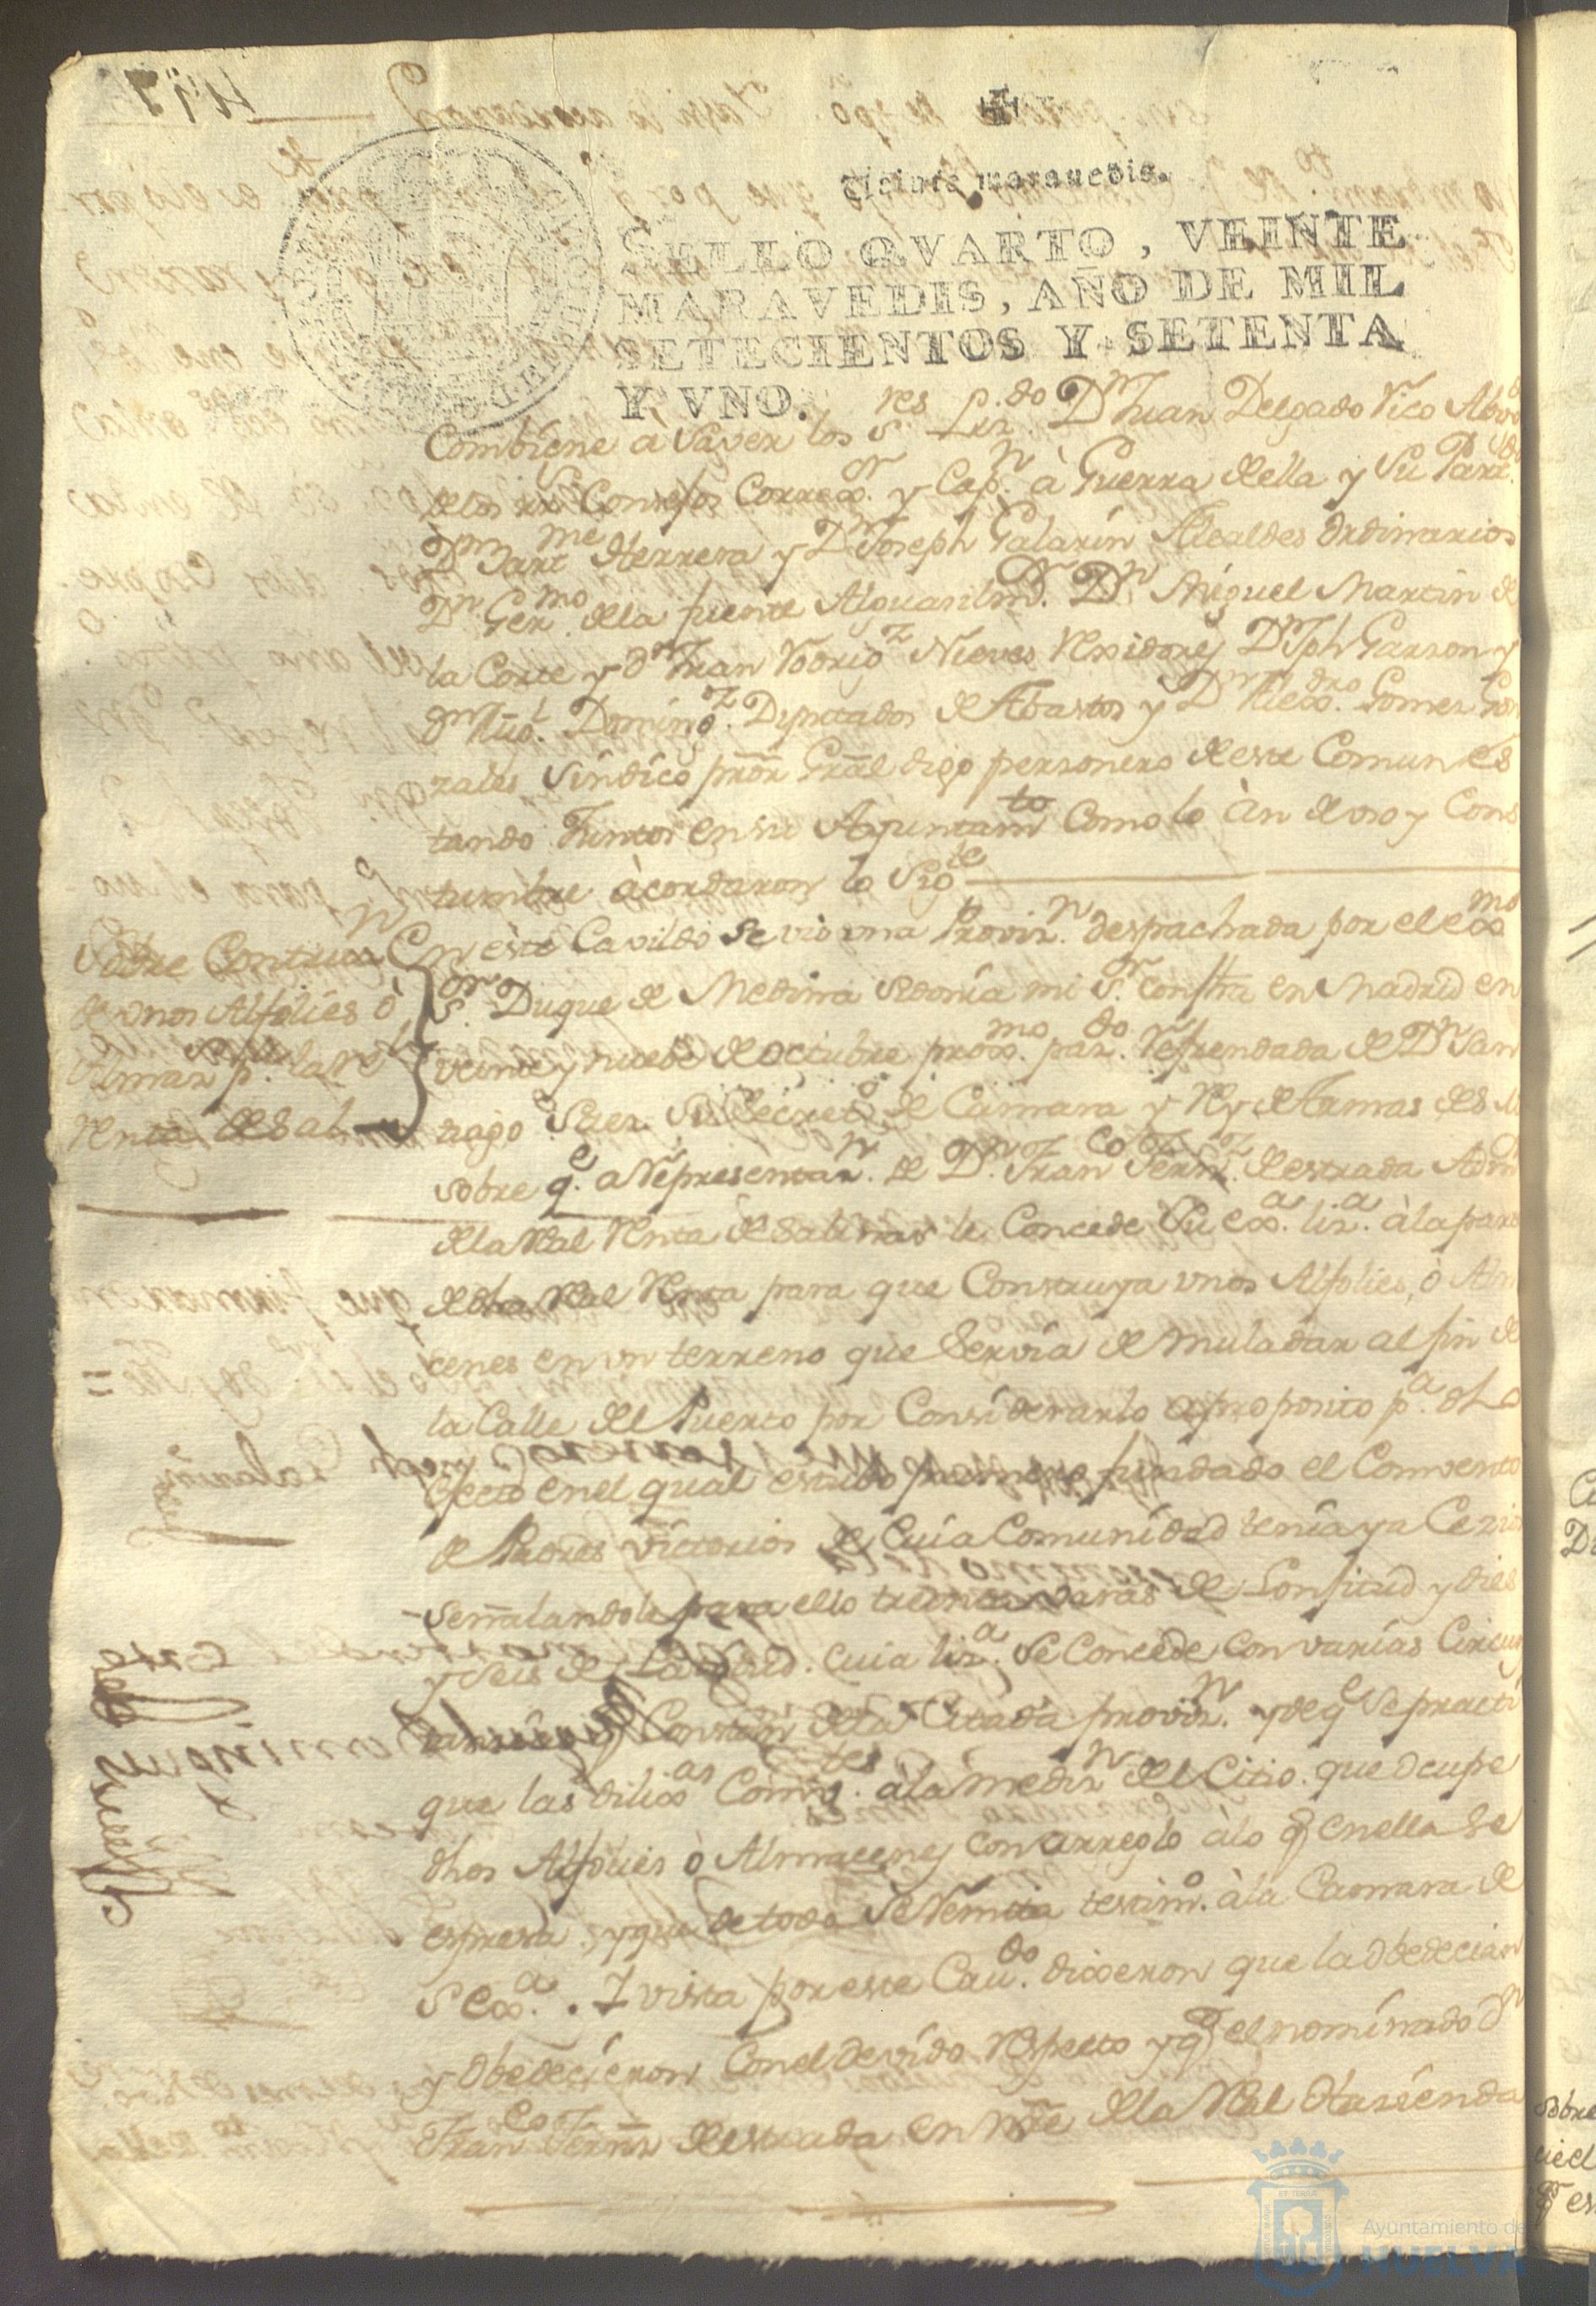 Veinte marauedis.
SELLO QVARTO, VEINTE
MARAVEDIS, AÑO DE MIL
SETECIENTOS Y SETENTA
Y VNO.
Combiene à Saver los S.res Liz.do Dn Juan Delgado Vico Abogdo
de los Rs Consejos Correx.or y Cap.n à Guerra della y Su Part.do
Dn Bart.me Herrera y Dn Joseph Galarin Alcaldes Ordinarios
Dn Ger.mo de la puente Alguasil m.or Dn Miguel Martin de
la Corte y dn Juan Rodrig.z Nieves Rexidores Dn Jph Garzon y
dn Doming.z Diputados de Abastos y Dn Alexo. Gomez Gon
zales Sindico pror Gral digo personero deeste Comun es
tando Juntos en su Ayuntamto Como lo àn de uso y Cons
tumbre àcordaron lo Sigte
Sobre Contrucn
de unos Alfolies ò
Almaz.s p.a la Rl
Renta de Sal
En este Cavildo se vio una Provis.n despachada por el exmo
S.or Duque de Medina Sidonia mi S.r con fha en Madrid en
veinte y nuebe de octubre prox.mo pas.do Refrendada de Dn San
tiago Saez Su Secreto de Camara y Rl de Armas de S. M
sobre q.e a Representaz.n de Dn Franco Fernz de estrada Admor
de la Real Renta de Salinas le Concede Su ex.a liz.a à la parte
de dha Real Renta para que Construya unos Alfolies, ò Alma
cenes en un terreno que Servia de muladar al fin de
la Calle del Puerto por Considerarlo a proposito p.a dho
efecto en el qual estubo primero fundado el Convento
de Padres Victorios de Cuia Comunidad tenia ya Cerio
señalandole para ello treinta varas de Longitud y dies
y seis de Latitud. Cuia liz.a Se Concede con varias Circun
tansias q Constan de la Citada provis.n y de q.e Se practi
que las dilix.as Comb.tes à la mediz.n del Citio. que ocupe
dhos Alfolies ò Almacenes con arreglo àlo q enella se
espresa y que de todo Se Remita testim.o à la Camara de
S ex.a. Y vista por este Cau.do dixeron que la Obedecian
y Obedecieron Con el devido Respecto y q el nominado dn
Franco Fernz de estrada en Nre de la Real Hasienda
Ayuntamiento de
HUELVA